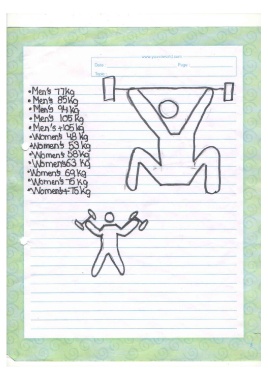 Date:
Page:
Topic:
•Men's 77kg
•Men's 85kg
•Men's 94kg
•Men's 105kg
•Men's +105kg
•Women's 48kg
•Women's 53kg
•Women's 58kg
•Women's 63 kg
•Women's 69kg
•Women's 75kg
•Women's +75kg